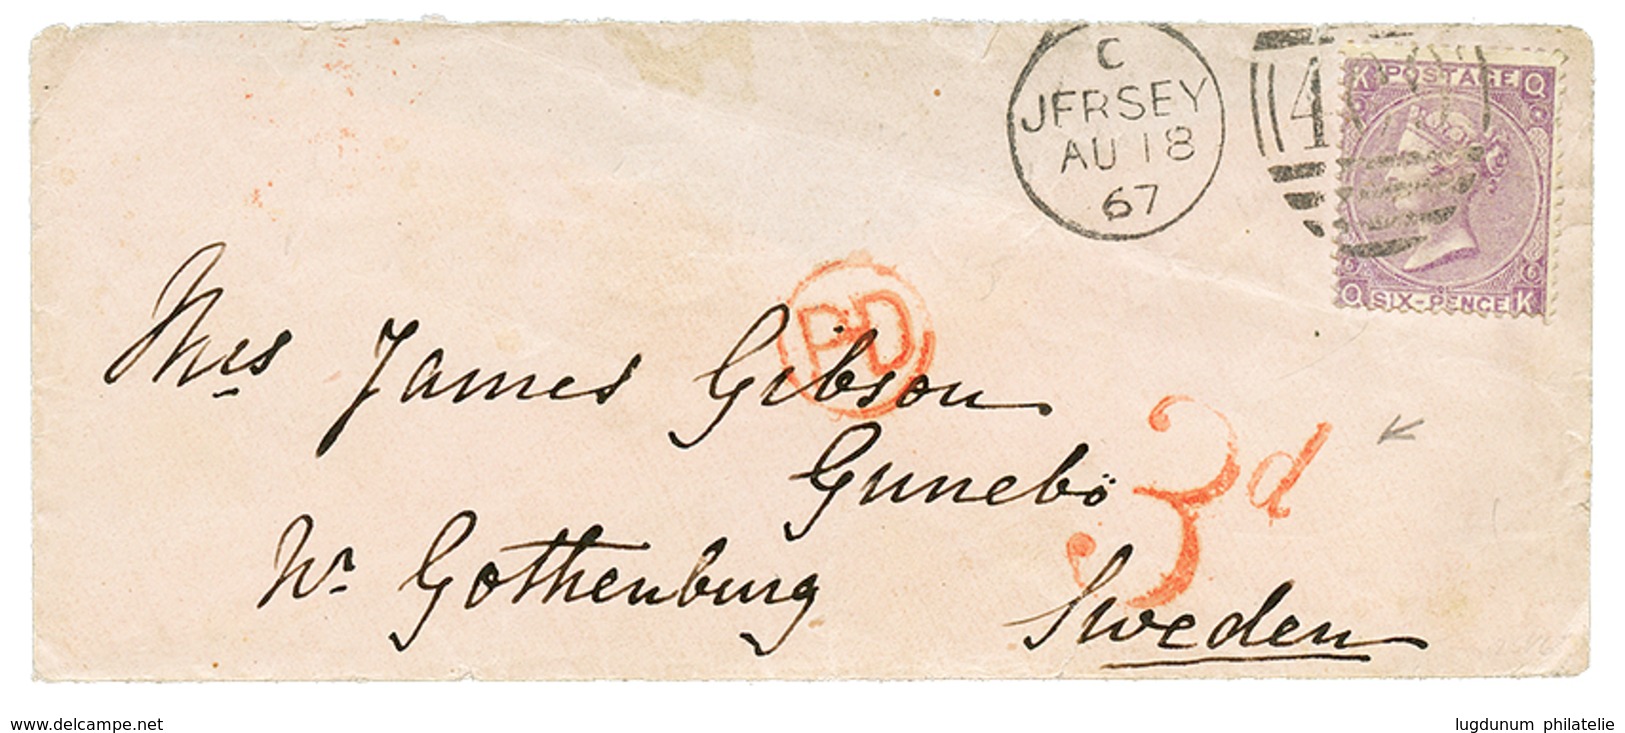 C
JERSEY
AU 18
67
K POSTAGE Q
6 6
Q SIX-PENCE K
P.D
Mrs James Gibson
Gunebö
Nr Gothenburg
3d
Sweden
www.delcampe.net
lugdunum philatelie